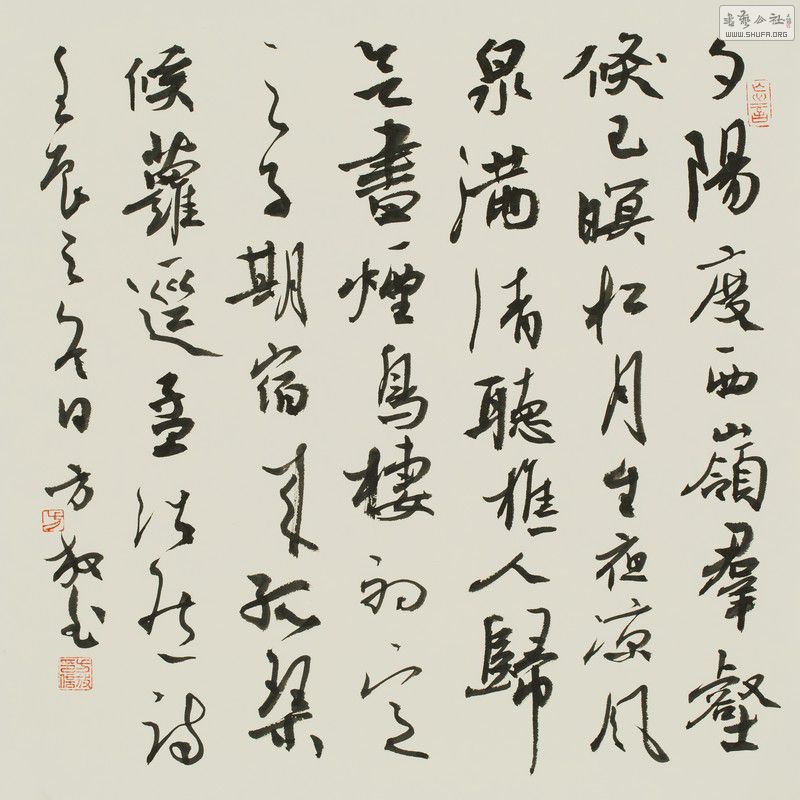 書藝公社
WWW.SHUFA.ORG
夕陽度西嶺羣壑
倏已暝松月生夜凉風
泉滿清聽樵人歸
盡煙鳥棲初定
之子期宿來孤琴
候蘿逕孟浩然詩
壬辰之冬日方放